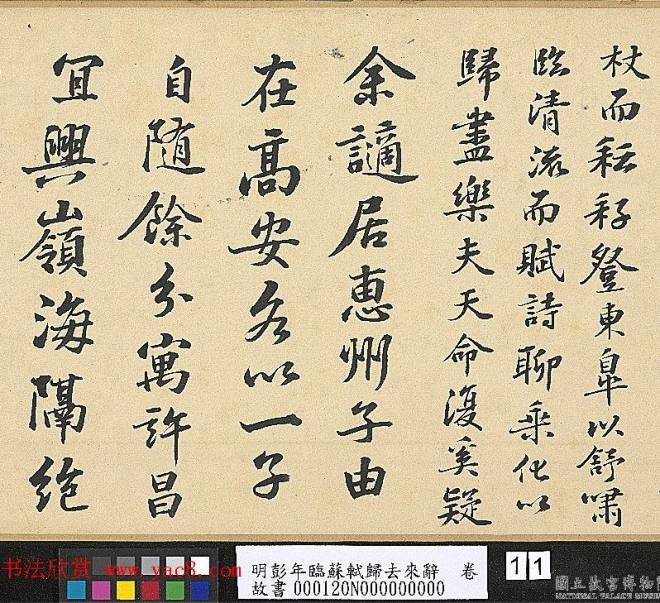 杖而耘耔登東皐以舒嘯
臨清流而賦詩聊乘化以
歸盡樂夫天命復奚疑
余謫居惠州子由
在高安各以一子
自随餘分寓許昌
冝興嶺海隔絶
书法欣赏
www.yac8.com
明彭年臨蘇軾歸去來辭 卷
故書 000120N000000000
11
國立故宮博物院
NATIONAL PALACE MUSEUM